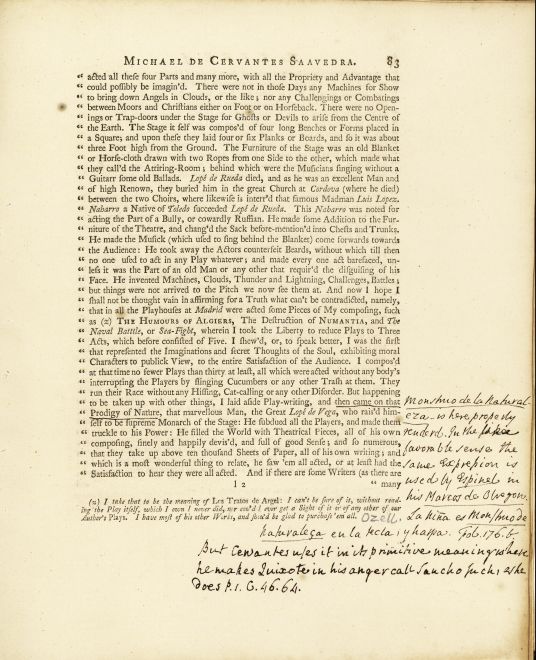 MICHAEL DE CERVANTES SAAVEDRA. 83
“ acted all these four Parts and many more, with all the Propriety and Advantage that
“ could possibly be imagin'd. There were not in those Days any Machines for Show
“ to bring down Angels in Clouds, or the like; nor any Challengings or Combatings
“ between Moors and Christians either on Foot or on Horseback. There were no Open-
“ ings or Trap-doors under the Stage for Ghosts or Devils to arise from the Centre of
“ the Earth. The Stage it self was compos'd of four long Benches or Forms placed in
“ a Square; and upon these they laid four or six Planks or Boards, and so it was about
“ three Foot high from the Ground. The Furniture of the Stage was an old Blanket
“ or Horse-cloth drawn with two Ropes from one Side to the other, which made what
“ they call'd the Attiring-Room; behind which were the Musicians singing without a
“ Guitarr some old Ballads. Lopé de Rueda died, and as he was an excellent Man and
“ of high Renown, they buried him in the great Church at Cordova (where he died)
“ between the two Choirs, where likewise is interr'd that famous Madman Luis Lopez.
“ Nabarro a Native of Toledo succeeded Lopé de Rueda. This Nabarro was noted for
“ acting the Part of a Bully, or cowardly Ruffian. He made some Addition to the Fur-
“ niture of the Theatre, and chang'd the Sack before-mention'd into Chests and Trunks.
“ He made the Musick (which used to sing behind the Blanket) come forwards towards
“ the Audience: He took away the Actors counterfeit Beards, without which till then
“ no one used to act in any Play whatever; and made every one act barefaced, un-
“ less it was the Part of an old Man or any other that requir'd the disguising of his
“ Face. He invented Machines, Clouds, Thunder and Lightning, Challenges, Battles;
“ but things were not arrived to the Pitch we now see them at. And now I hope I
“ shall not be thought vain in affirming for a Truth what can't be contradicted, namely,
“ that in all the Playhouses at Madrid were acted some Pieces of My composing, such
“ as (z) THE HUMOURS OF ALGIERS, The DESTRUCTION of NUMANTIA, and The
“ Naval Battle, or Sea-Fight, wherein I took the Liberty to reduce Plays to Three
“ Acts, which before consisted of Five. I shew'd, or, to speak better, I was the first
“ that represented the Imaginations and secret Thoughts of the Soul, exhibiting moral
“ Characters to publick View, to the entire Satisfaction of the Audience. I compos'd
“ at that time no fewer Plays than thirty at least, all which were acted without any body's
“ interrupting the Players by flinging Cucumbers or any other Trash at them. They
“ run their Race without any Hissing, Cat-calling or any other Disorder. But happening
“ to be taken up with other things, I laid aside Play-writing, and then came on that
“ Prodigy of Nature, that marvellous Man, the Great Lopé de Vega, who rais'd him-
“ self to be supreme Monarch of the Stage: He subdued all the Players, and made them
“ truckle to his Power: He filled the World with Theatrical Pieces, all of his own
“ composing, finely and happily devis'd, and full of good Sense; and so numerous,
“ that they take up above ten thousand Sheets of Paper, all of his own writing; and
“ which is a most wonderful thing to relate, he saw 'em all acted, or at least had the
“ Satisfaction to hear they were all acted. And if there are some Writers (as there are
l 2 “ many
(z) I take that to be the meaning of Los Tratos de Argel: I can't be sure of it, without read-
ing the Play itself, which I own I never did, nor cou'd I ever get a Sight of it or of any other of our
Author's Plays. I have most of his other Works, and shou'd be glad to purchase 'em all. Ozell.
Monstruo de la Natural-
eza is here properly
renderd. In the
favorable sense the
same Expression is
used by Espinel in
his Marcos de Obregon.
La Niña es Monstruo de
Naturaleza en la tecla, y harpa. Fol. 176. b
But Cervantes uses it in its primitive meaning where
he makes Quixote in his anger call Sancho such, as he
does P. 1. C. 46. 64.